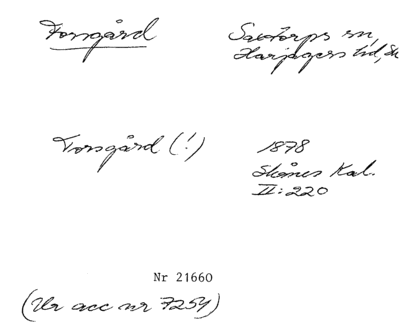 Forsgård
Saxtorps sn,
Harjagers hd, Sk
Torsgård (!)
1878
Skånes Kal.
II: 220
Nr 21660
(Ur acc nr 7254)